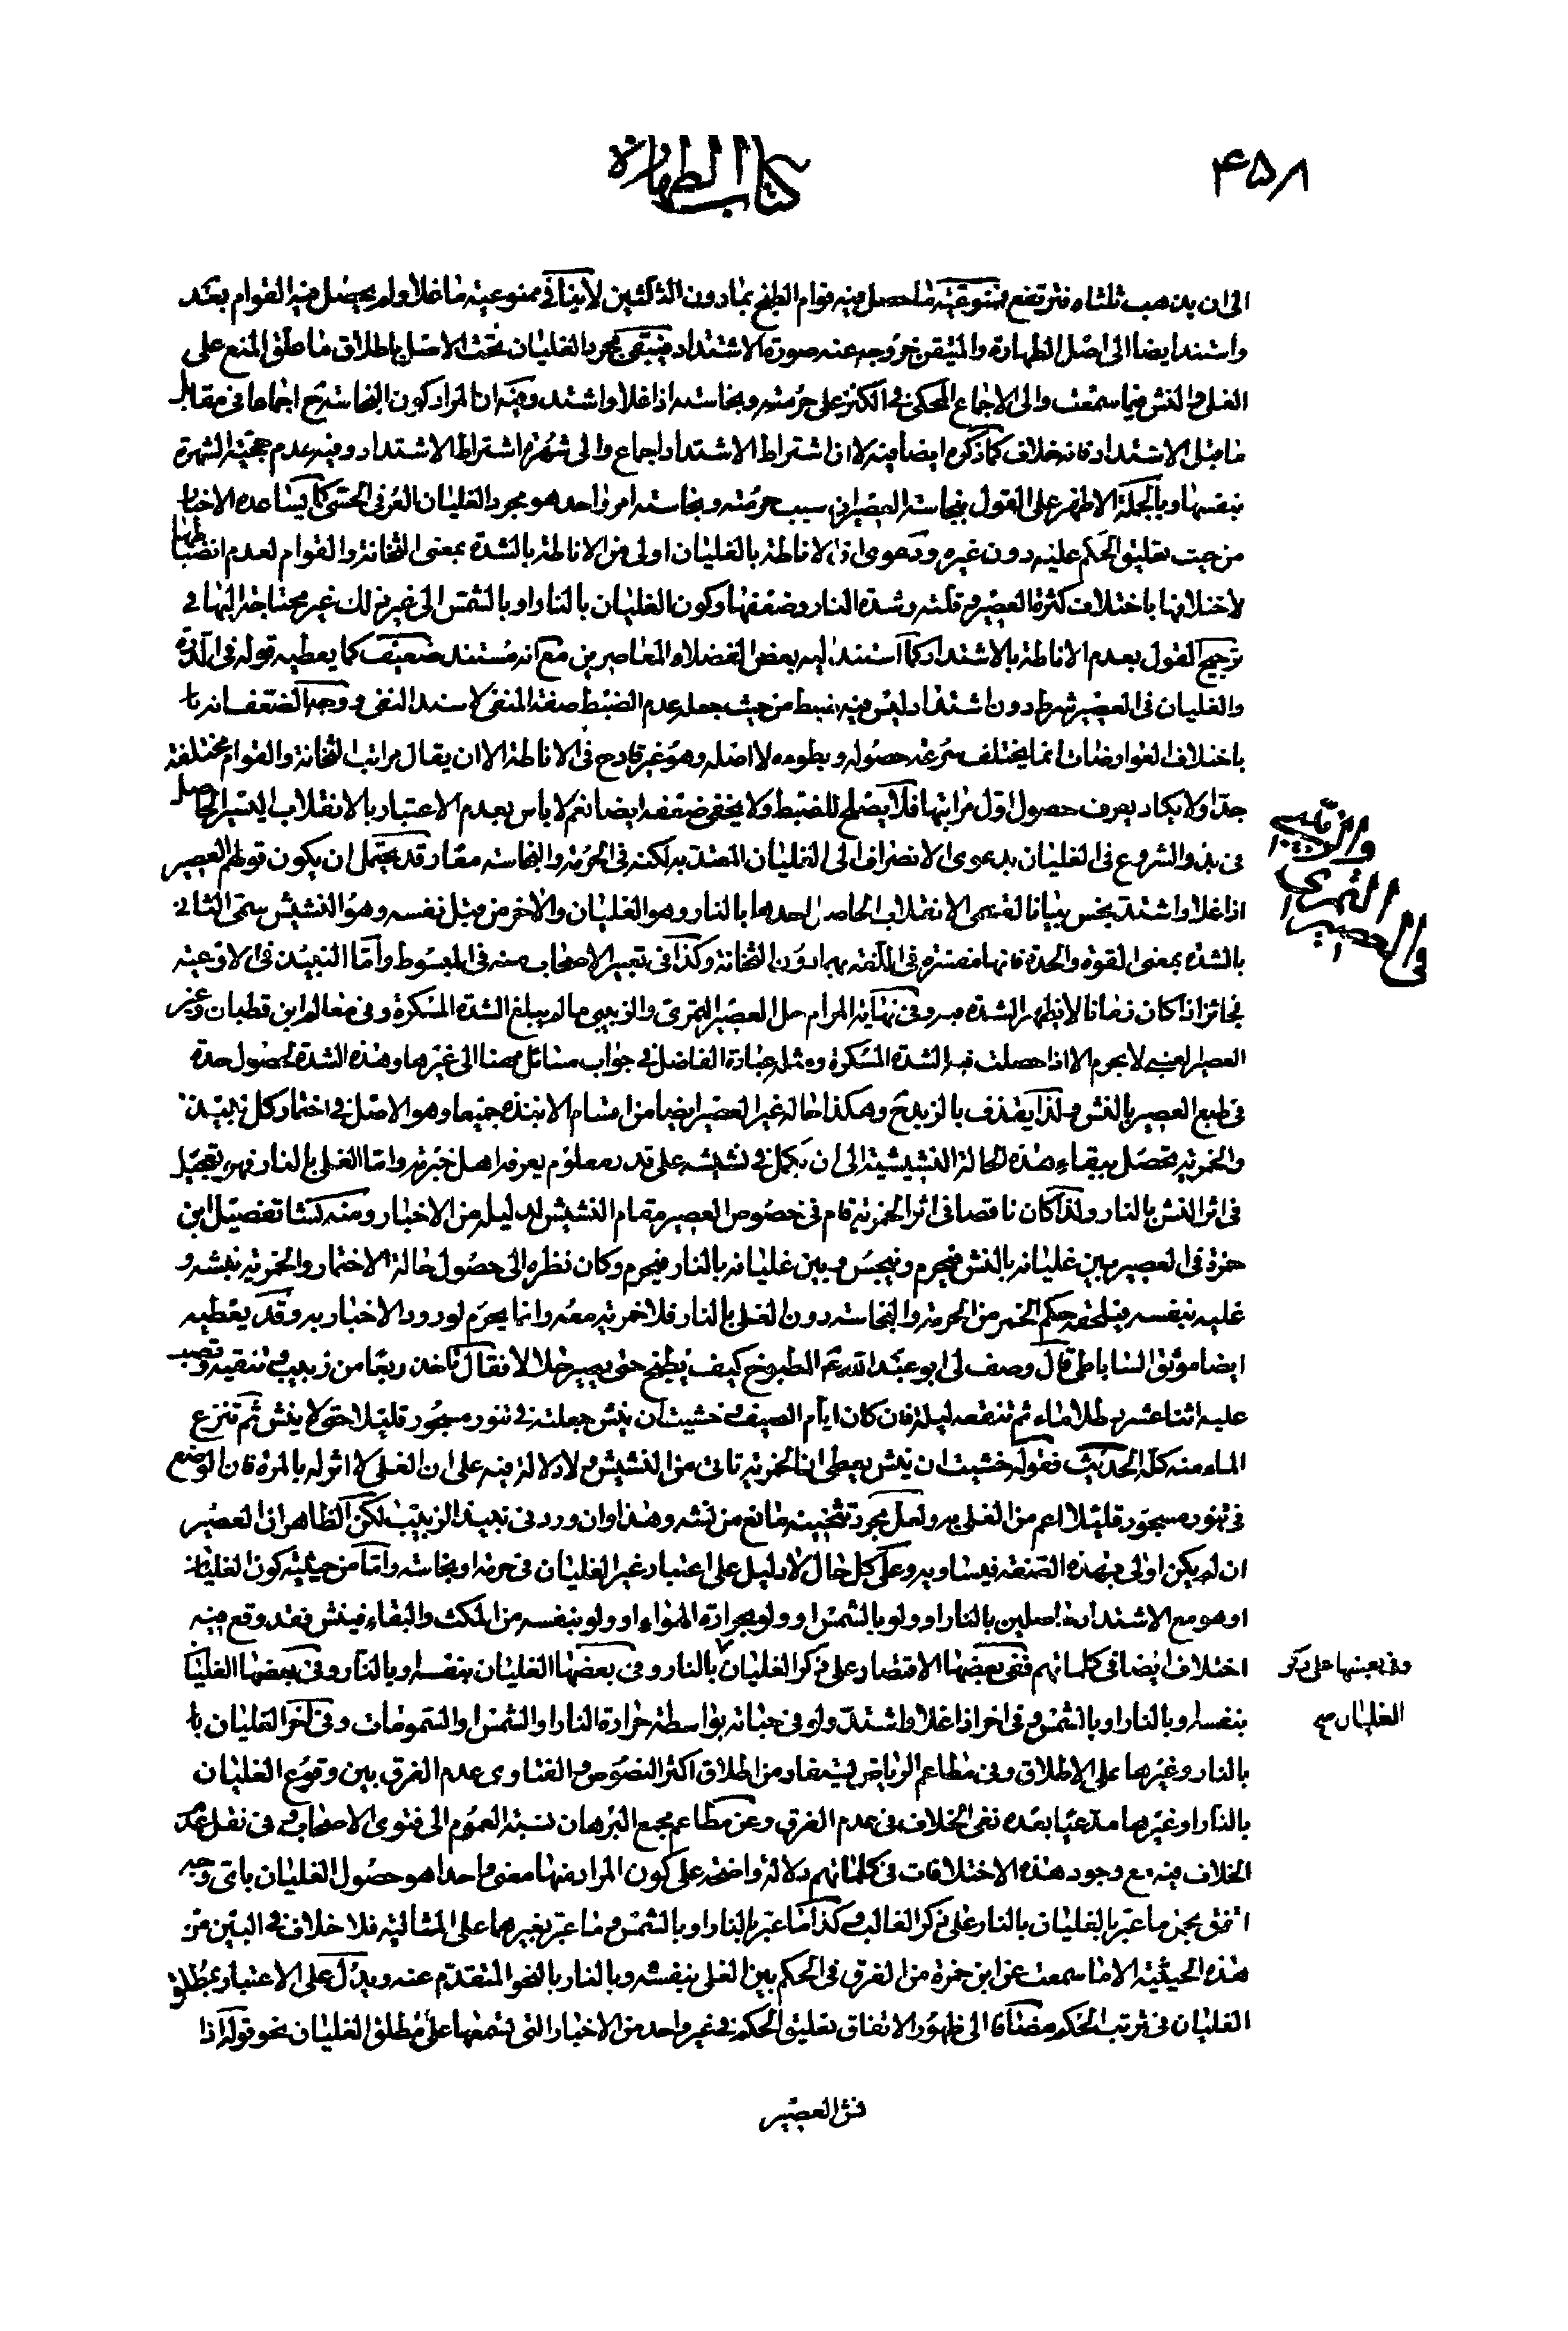 ۴۵۸
كتاب الطهارة
الى ان يذهب ثلثاه فترتفع ممنوعيّة ما حصل فيه قوام الطبخ بما دون الثلثين لا ينافى ممنوعيته ما غلا ولم يحصل فيه القوام بعد
واستند ايضا الى اصل الطهارة والمتيقن خروجه عنه صورة الاشتداد فيبقى مجرد الغليان تحت الاصل باطلاق ما علق المنع على
الغلى والنش فيما سمعت والى الاجماع المحكى فى الكنز على حرمته ونجاسته اذا غلا واشتد وفيه ان المراد كون النجاسته ح اجماعا فى مقابل
ما قبل الاشتداد فانه خلاف كما ذكره ايضا فيه لا ان اشتراط الاشتداد اجماع والى شهرة اشتراط الاشتداد وفيه عدم حجية الشهرة
بنفسها وبالجملة الاظهر على القول بنجاسة العصير ان سبب حرمته ونجاسته امر واحد هو مجرد الغليان العرفى الحسّى كما يساعده الاخبار
من حيث تعليق الحكم عليه دون غيره ودعوى ان الاناطة بالغليان اولى من الاناطة بالشدة بمعنى الثخانة والقوام لعدم انضباطها
لاختلافها باختلاف كثرة العصير وقلته وشدة النار وضعفها وكون الغليان بالنار او بالشمس الى غير ذلك غير محتاجة اليها فى
ترجيح القول بعدم الاناطة بالاشتداد كما استند اليه بعض الفضلاء المعاصرين مع انه مستند ضعيف كما يعطيه قوله فى الدرة
والغليان فى العصير شرط دون اشتداد ليس فيه ضبط من حيث جعله عدم الضبط صفة المنفى لا سند النفى ووجه الضعف انه با
باختلاف العوارضات انما يختلف سرعة حصوله وبطوءه لا اصله وهو غير قادح فى الاناطة الا ان يقال مراتب الثخانة والقوام مختلفة
جدا ولا يكاد يعرف حصول اول مراتبها فلا يصلح للضبط ولا يخفى ضعفه ايضا نعم لا باس بعدم الاعتبار بالانقلاب اليسير الحاصل
فى بدو الشروع فى الغليان بدعوى الانصراف الى الغليان المعتد به لكنه فى الحرمة والنجاسته معا وقد يحتمل ان يكون قولهم العصير
اذا غلا واشتد ينجس بيانا لقسمى الانقلاب الحاصل احدهما بالنار وهو الغليان والاخر من قبل نفسه وهو النشيش سمى الثانى
بالشدة بمعنى القوة والحدة فانها مفسّرة فى اللغة بهما دون الثخانة وكذا فى تعبير الاصحاب منه فى المبسوط واما النبيذ فى الاوعية
فجائز اذا كان زمانا لا يظهر الشدة فيه وفى نهاية المرام حل العصير التمرى والزبيبى ما لم يبلغ الشدة المسكرة وفى معالم ابن قطبان وغير
العصير العنبى لا يحرم الا اذا حصلت فيه الشدة المسكرة ومثله عبارة الفاضل فى جواب مسائل مهنا الى غيرها وهذه الشدة لحصول حدة
فى طبع العصير بالنش ولذا يقذف بالزبد ح وهكذا حاله غير العصير ايضا من اقسام الانبذة جميعا وهو الاصل فى اختمار كل نبيذ
والخمرية تحصل ببقاء هذه الحالة النشيشية الى ان تكمل فى نشيشه على قدر معلوم يعرفه اهل خبرته واما الغلى بالنار فهو تعجيل
فى اثر النش بالنار ولذا كان ناقصا فى اثر الخمرية قام فى خصوص العصير مقام النشيش لدليله من الاخبار ومنه نشا تفصيل ابن
حمزة فى العصير بين غليانه بالنش فيحرم وينجس وبين غليانه بالنار فيحرم وكان نظره الى حصول حالة الاختمار والخمرية بنشه و
غليه بنفسه فيلحقه حكم الخمر من الحرمة والنجاسته دون الغلى بالنار فلا خمرية معه وانما يحرم لورود الاخبار به وقد يعطيه
ايضا موثق الساباطى قال وصف لى ابو عبد الله ع المطبوخ كيف يطبخ حتى يصير حلالا فقال تاخذ ربعا من زبيب وتنقيه وتصب
عليه اثنا عشر رطلا ماء ثم تنقعه ليلة فان كان ايام الصيف وخشيت ان ينش جعلته فى تنور مسجور قليلا حتى لا ينش ثم تنزع
الماء منه كله الحديث فقوله خشيت ان ينش يعطى ان الخمرية تاتى من النشيش ولا دلالة فيه على ان الغلى لا اثر له بالمرة فان الوضع
فى تنور مسجور قليلا اعم من الغلى به ولعل مجرد تثخينه مانع من نشه وهذا وان ورد فى نبيذ الزبيب لكن الظاهر ان العصير
ان لم يكن اولى بهذه الصفة فيساويه وعلى كل حال لا دليل على اعتبار غير الغليان فى حرمته او نجاسته واما من حيثية كون الغليان
او هو مع الاشتداد حاصلين بالنار او ولو بالشمس او ولو بحرارة الهواء او ولو بنفسه من المكث والبقاء فينش فقد وقع فيه
اختلاف ايضا فى كلماتهم ففى بعضها الاقتصار على ذكر الغليان بالنار وفى بعضها الغليان بنفسه وبالنار وفى بعضها الغليان
بنفسه وبالنار او بالشمس وفى اخر اذا غلا واشتد ولو فى حباته بواسطة حرارة النار او الشمس او السمومات وفى اخر الغليان با
بالنار وغيرها على الاطلاق وفى مطاعم الرياض يستفاد من اطلاق اكثر النصوص والفتاوى عدم الفرق بين وقوع الغليان
بالنار او غيرها مدعيا بعده نفى الخلاف فى عدم الفرق وعن مطاعم مجمع البرهان نسبة العموم الى فتوى الاصحاب وفى نقل عدم
الخلاف فيه مع وجود هذه الاختلافات فى كلماتهم دلالة واضحة على كون المراد منها معنى واحدا هو حصول الغليان باى وجه
اتفق بحمل ما عبر بالغليان بالنار على ذكر الغالب وكذا ما عبر بالنار او بالشمس وما عبر بغيرهما على المثالية فلا خلاف فى البين من
هذه الحيثية الا ما سمعت عن ابن حمزة من الفرق فى الحكم بين الغلى بنفسه وبالنار بالنحو المتقدم عنه ويدل على الاعتبار بمطلق
الغليان فى ترتب الحكم مضافا الى ظهور الاتفاق تعليق الحكم فى غير واحد من الاخبار التى سمعتها على مطلق الغليان نحو قوله اذا
نش العصير
فى العصير
التمرى
والزبيبى
وفى بعضها على ذكر
الغليان صح